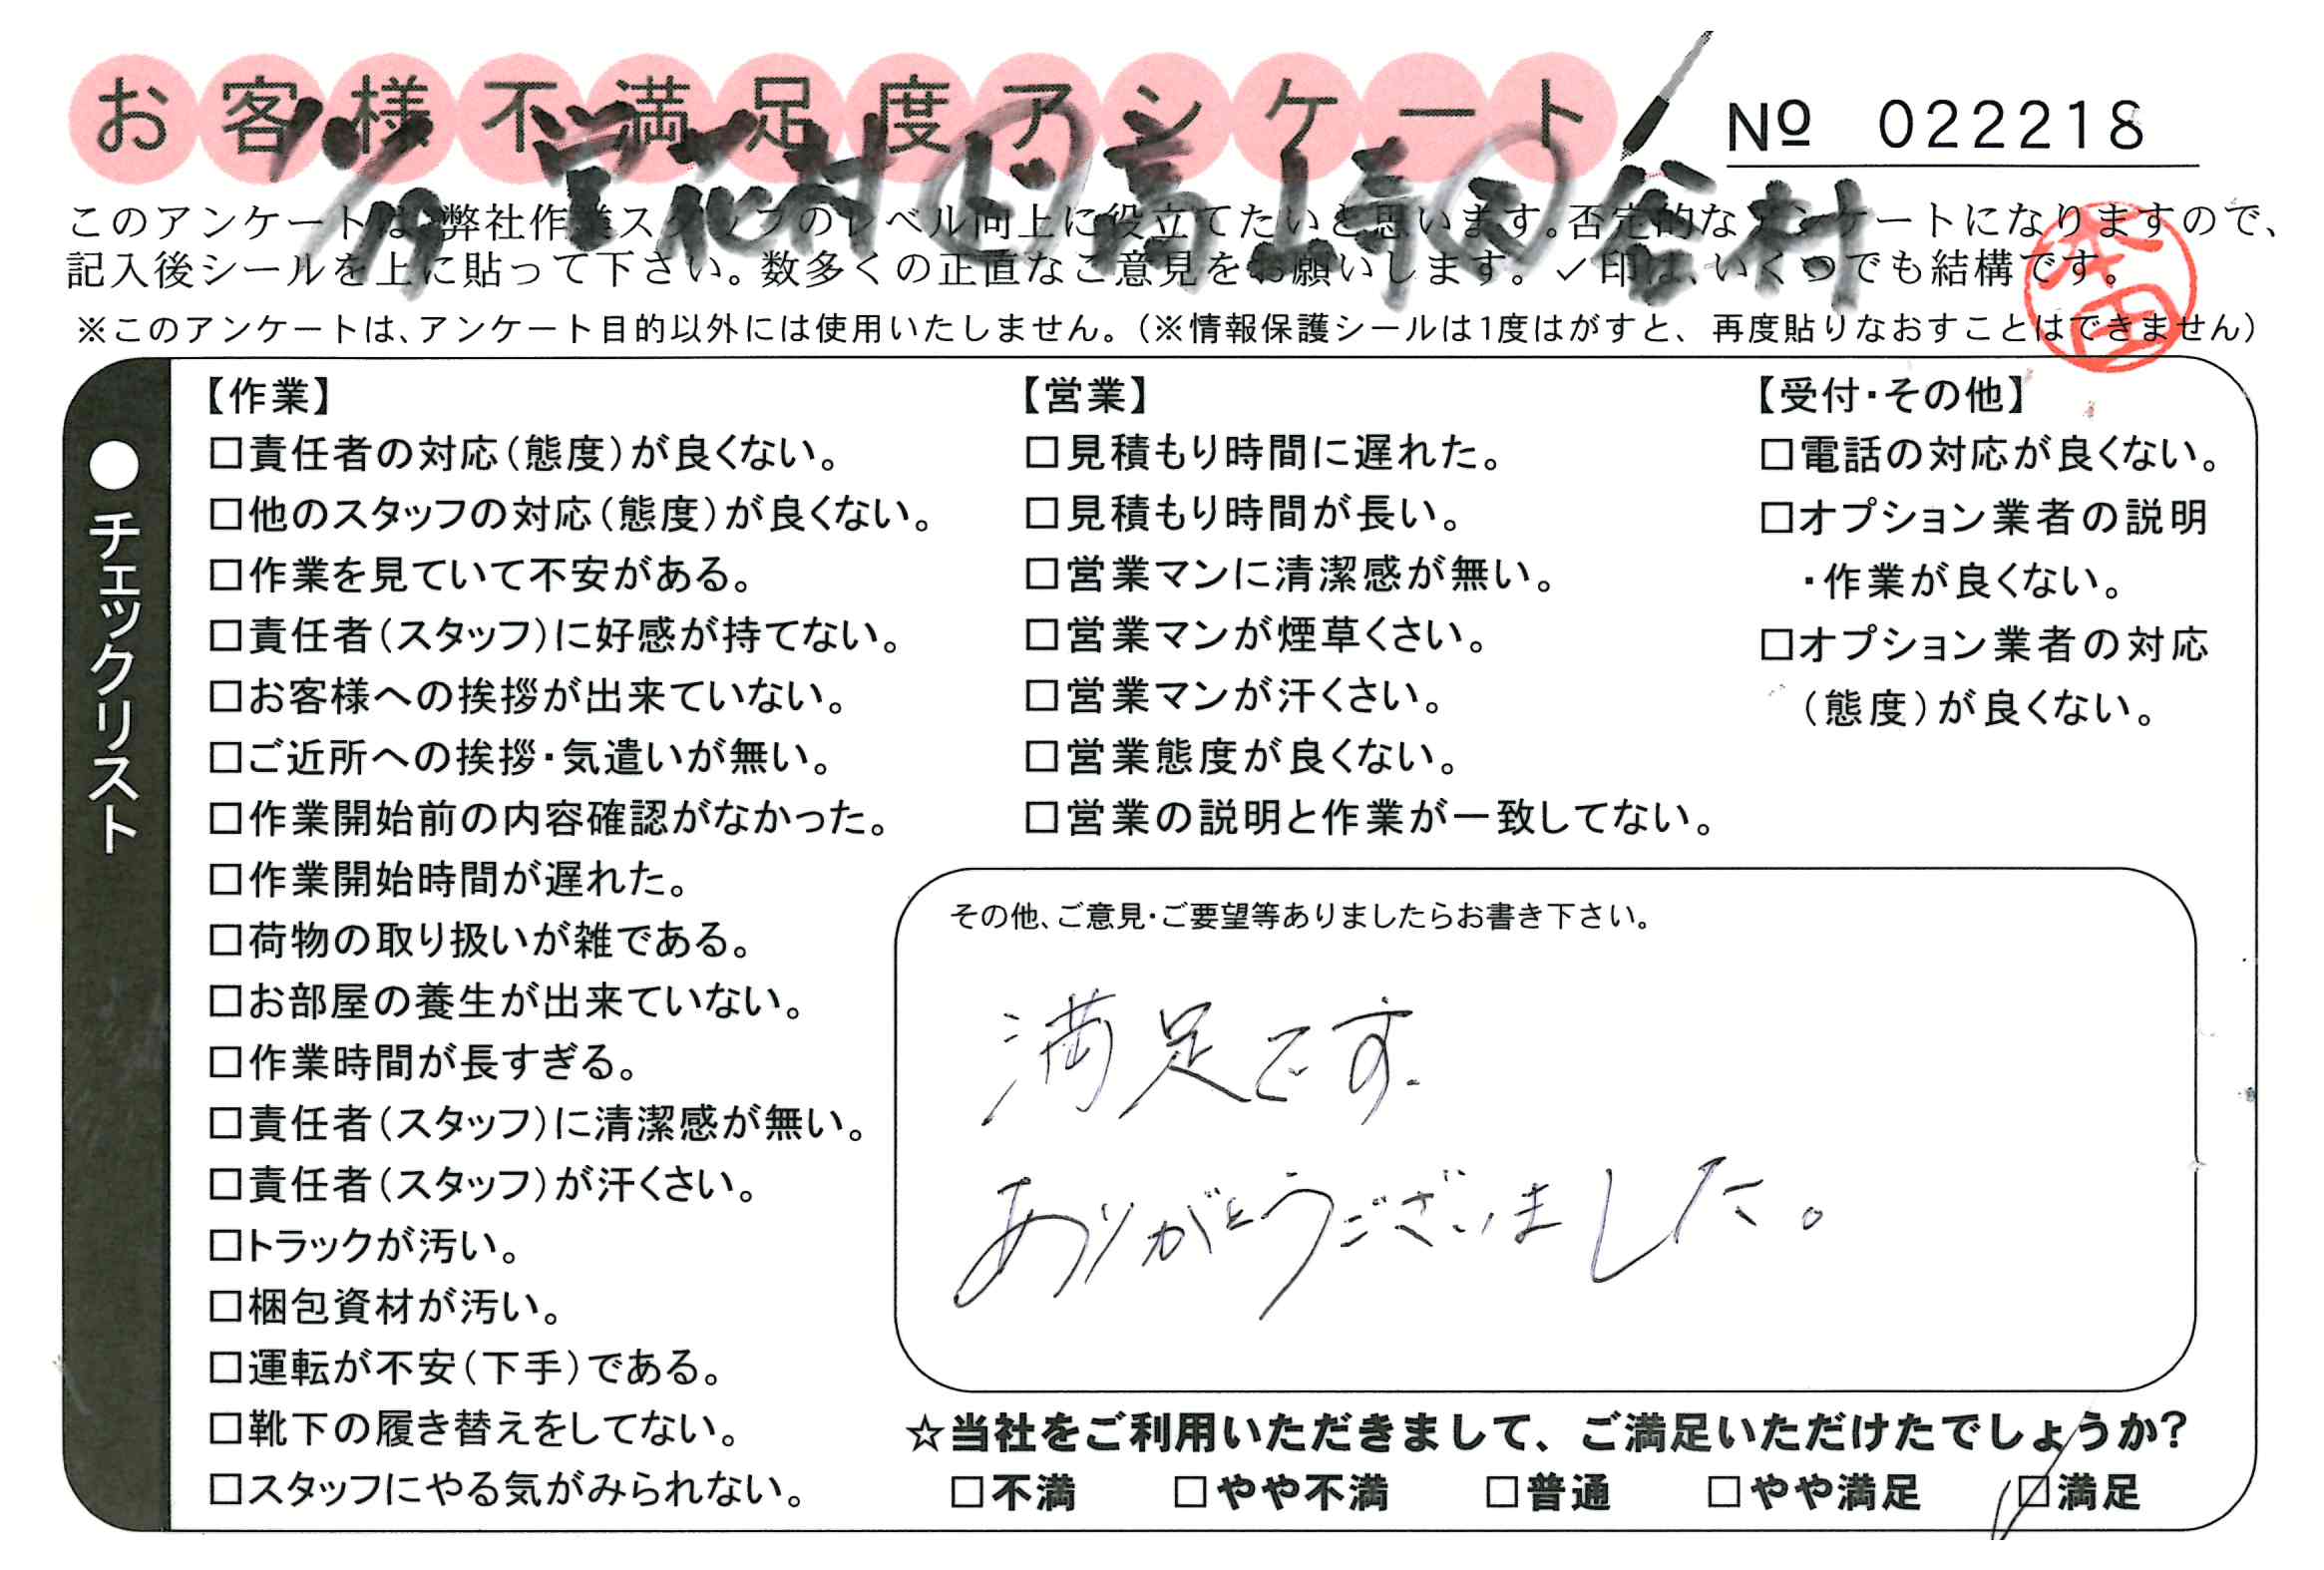 お客様不満足度アンケート
№ 022218
このアンケートは、弊社作業スタッフのレベル向上に役立てたいと思います。否定的なアンケートになりますので、
記入後シールを上に貼って下さい。数多くの正直なご意見をお願いします。✓印は、いくつでも結構です。
※このアンケートは、アンケート目的以外には使用いたしません。（※情報保護シールは1度はがすと、再度貼りなおすことはできません）
本田
●チェックリスト
【作業】
□責任者の対応（態度）が良くない。
□他のスタッフの対応（態度）が良くない。
□作業を見ていて不安がある。
□責任者（スタッフ）に好感が持てない。
□お客様への挨拶が出来ていない。
□ご近所への挨拶・気遣いが無い。
□作業開始前の内容確認がなかった。
□作業開始時間が遅れた。
□荷物の取り扱いが雑である。
□お部屋の養生が出来ていない。
□作業時間が長すぎる。
□責任者（スタッフ）に清潔感が無い。
□責任者（スタッフ）が汗くさい。
□トラックが汚い。
□梱包資材が汚い。
□運転が不安（下手）である。
□靴下の履き替えをしてない。
□スタッフにやる気がみられない。
【営業】
□見積もり時間に遅れた。
□見積もり時間が長い。
□営業マンに清潔感が無い。
□営業マンが煙草くさい。
□営業マンが汗くさい。
□営業態度が良くない。
□営業の説明と作業が一致してない。
【受付・その他】
□電話の対応が良くない。
□オプション業者の説明
・作業が良くない。
□オプション業者の対応
（態度）が良くない。
その他、ご意見・ご要望等ありましたらお書き下さい。
満足です.
ありがとうございました。
☆当社をご利用いただきまして、ご満足いただけたでしょうか?
□不満 □やや不満 □普通 □やや満足 ☑満足